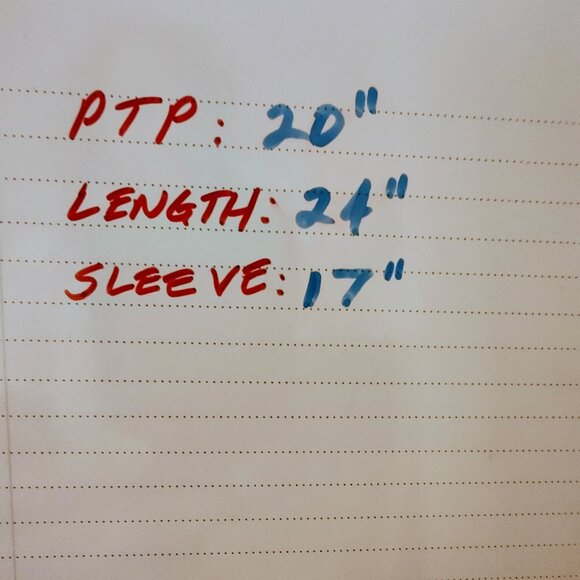 PTP: 20"
LENGTH: 24"
SLEEVE: 17"